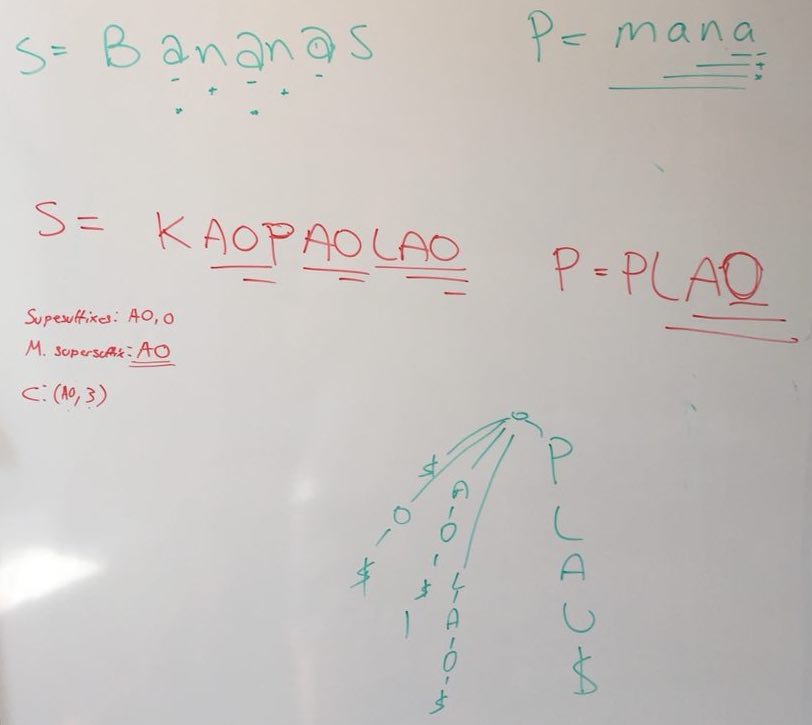 S = Bananas P = mana
S = KAOPAOLAO P = PLAO
Supesuffixes: AO, O
M. supersuffix: AO
C: (AO, 3)
$
O
$
A
O
$
L
A
O
$
P
L
A
U
$